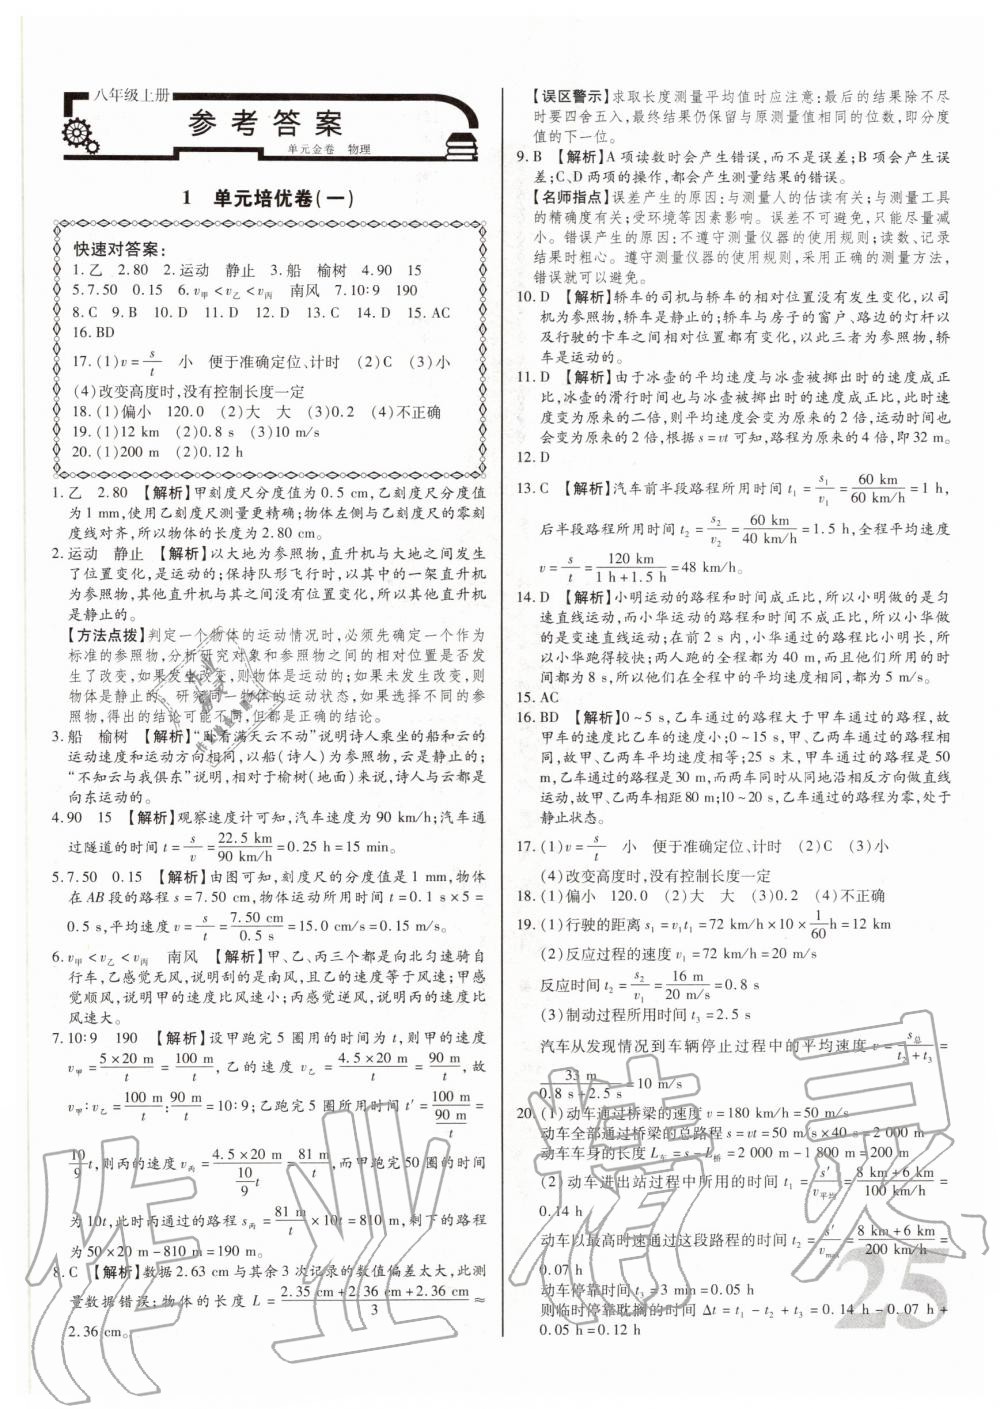 八年级上册
参考答案
单元金卷 物理
1 单元培优卷(一)
快速对答案:
1.乙 2.80 2.运动 静止 3.船 榆树 4.90 15
5.7.50 0.15 6.v甲<v乙<v丙 南风 7.10:9 190
8.C 9.B 10.D 11.D 12.D 13.C 14.D 15.AC
16.BD
17.(1)v=s/t 小 便于准确定位、计时 (2)C (3)小
(4)改变高度时,没有控制长度一定
18.(1)偏小 120.0 (2)大 大 (3)0.2 (4)不正确
19.(1)12 km (2)0.8 s (3)10 m/s
20.(1)200 m (2)0.12 h
1.乙 2.80 【解析】甲刻度尺分度值为0.5 cm,乙刻度尺分度值
为1 mm,使用乙刻度尺测量更精确;物体左侧与乙刻度尺的零刻
度线对齐,所以物体的长度为2.80 cm。
2.运动 静止 【解析】以大地为参照物,直升机与大地之间发生
了位置变化,是运动的;保持队形飞行时,以其中的一架直升机
为参照物,其他直升机与其之间没有位置变化,所以其他直升机
是静止的。
【方法点拨】判定一个物体的运动情况时,必须先确定一个作为
标准的参照物,分析研究对象和参照物之间的相对位置是否发
生了改变,如果发生改变,则物体是运动的;如果未发生改变,则
物体是静止的。研究同一物体的运动状态,如果选择不同的参
照物,得出的结论可能不同,但都是正确的。
3.船 榆树 【解析】“卧看满天云不动”说明诗人乘坐的船和云的
运动速度和运动方向相同,以船(诗人)为参照物,云是静止的;
“不知云与我俱东”说明,相对于榆树(地面)来说,诗人与云都是
向东运动的。
4.90 15 【解析】观察速度计可知,汽车速度为90 km/h;汽车通
过隧道的时间t=s/v=22.5 km/90 km/h=0.25 h=15 min。
5.7.50 0.15 【解析】由图可知,刻度尺的分度值是1 mm,物体
在AB段的路程s=7.50 cm,物体运动所用时间t=0.1 s×5=
0.5 s,平均速度v=s/t=7.50 cm/0.5 s=15.0 cm/s=0.15 m/s。
6.v甲<v乙<v丙 南风 【解析】甲、乙、丙三个都是向北匀速骑自
行车,乙感觉无风,说明刮的是南风,且乙的速度等于风速;甲感
觉顺风,说明甲的速度比风速小;丙感觉逆风,说明丙的速度比
风速大。
7.10:9 190 【解析】设甲跑完5圈用的时间为t,则甲的速度
v甲=5×20 m/t=100 m/t,乙的速度v乙=4.5×20 m/t=90 m/t,故
v甲:v乙=100 m/t:90 m/t=10:9;乙跑完5圈所用时间t′=100 m/(90 m/t)=
10/9 t,则丙的速度v丙=4.5×20 m/(10/9 t)=81 m/t,而甲跑完50圈的时间
为10t,此时丙通过的路程s丙=81 m/t×10t=810 m,剩下的路程
为50×20 m-810 m=190 m。
8.C 【解析】数据2.63 cm与其余3次记录的数值偏差太大,此测
量数据错误;物体的长度L=(2.35 cm+2.36 cm+2.36 cm)/3≈
2.36 cm。
【误区警示】求取长度测量平均值时应注意:最后的结果除不尽
时要四舍五入,最终结果仍保留与原测量值相同的位数,即分度
值的下一位。
9.B 【解析】A项读数时会产生错误,而不是误差;B项会产生误
差;C、D两项的操作,都会产生测量结果的错误。
【名师指点】误差产生的原因:与测量人的估读有关;与测量工具
的精确度有关;受环境等因素影响。误差不可避免,只能尽量减
小。错误产生的原因:不遵守测量仪器的使用规则;读数、记录
结果时粗心。遵守测量仪器的使用规则,采用正确的测量方法,
错误就可以避免。
10.D 【解析】轿车的司机与轿车的相对位置没有发生变化,以司
机为参照物,轿车是静止的;轿车与房子的窗户、路边的灯杆以
及行驶的卡车之间相对位置都有变化,以此三者为参照物,轿
车是运动的。
11.D 【解析】由于冰壶的平均速度与冰壶被掷出时的速度成正
比,冰壶的滑行时间也与冰壶被掷出时的速度成正比,此时速
度变为原来的二倍,则平均速度会变为原来的2倍,运动时间也
会变为原来的2倍,根据s=vt可知,路程为原来的4倍,即32 m。
12.D
13.C 【解析】汽车前半段路程所用时间t1=s1/v1=60 km/60 km/h=1 h,
后半段路程所用时间t2=s2/v2=60 km/40 km/h=1.5 h,全程平均速度
v=s/t=120 km/(1 h+1.5 h)=48 km/h。
14.D 【解析】小明运动的路程和时间成正比,所以小明做的是匀
速直线运动,而小华运动的路程和时间不成正比,所以小华做
的是变速直线运动;在前2 s内,小华通过的路程比小明长,所
以小华跑得较快;两人跑的全程都为40 m,而且他们所用的时
间都为8 s,所以他们在全程中的平均速度相同,都为5 m/s。
15.AC
16.BD 【解析】0~5 s,乙车通过的路程大于甲车通过的路程,故
甲车的速度比乙车的速度小;0~15 s,甲、乙两车通过的路程相
同,故甲、乙两车平均速度相等;25 s末,甲车通过的路程是50
m,乙车通过的路程是30 m,而两车同时从同地沿相反方向做直线
运动,故甲、乙两车相距80 m;10~20 s,乙车通过的路程为零,处于
静止状态。
17.(1)v=s/t 小 便于准确定位、计时 (2)C (3)小
(4)改变高度时,没有控制长度一定
18.(1)偏小 120.0 (2)大 大 (3)0.2 (4)不正确
19.(1)行驶的距离s1=v1t1=72 km/h×10×1/60 h=12 km
(2)反应过程的速度v1=72 km/h=20 m/s
反应时间t2=s2/v1=16 m/20 m/s=0.8 s
(3)制动过程所用时间t3=2.5 s
汽车从发现情况到车辆停止过程中的平均速度v=s总/(t2+t3)=
33 m/(0.8 s+2.5 s)=10 m/s
20.(1)动车通过桥梁的速度v=180 km/h=50 m/s
动车全部通过桥梁的总路程s=vt=50 m/s×40 s=2 000 m
动车车身的长度L车=s-L桥=2 000 m-1 800 m=200 m
(2)动车进出站过程中所用的时间t1=s′/v平均=(8 km+6 km)/100 km/h=
0.14 h
动车以最高时速通过这段路程的时间t2=s′/vmax=(8 km+6 km)/200 km/h=
0.07 h
动车停靠时间t3=3 min=0.05 h
则临时停靠耽搁的时间Δt=t1-t2+t3=0.14 h-0.07 h+
0.05 h=0.12 h
作业精灵
25